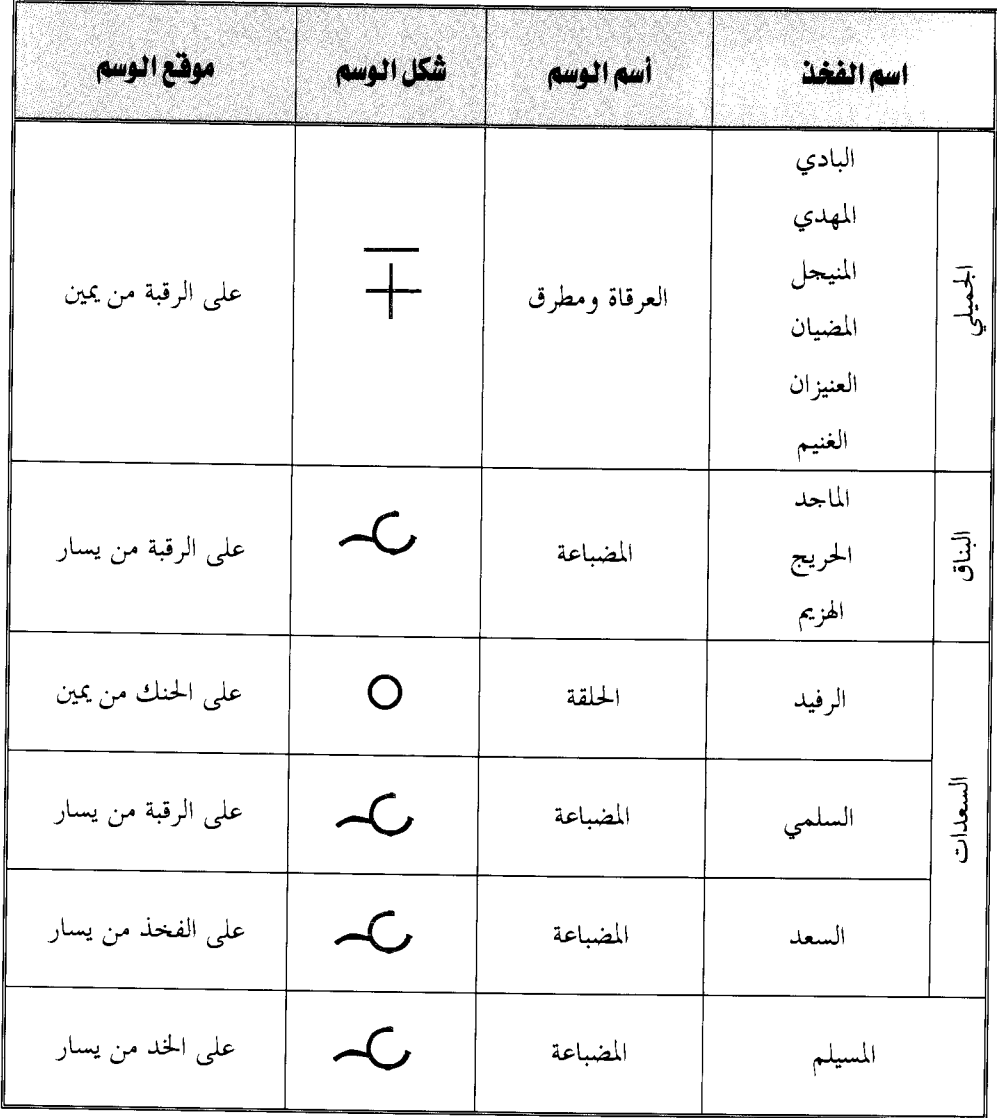 اسم الفخذ أسم الوسم شكل الوسم موقع الوسم
الجميلي
البادي
المهدي
المنيجل
المضيان
العنيزان
الغنيم
العرقاة ومطرق
على الرقبة من يمين
البناق
الماجد
الحريج
الهزيم
المضباعة
على الرقبة من يسار
السعدات
الرفيد الحلقة على الحنك من يمين
السلمي المضباعة على الرقبة من يسار
السعد المضباعة على الفخذ من يسار
المسيلم المضباعة على الخد من يسار